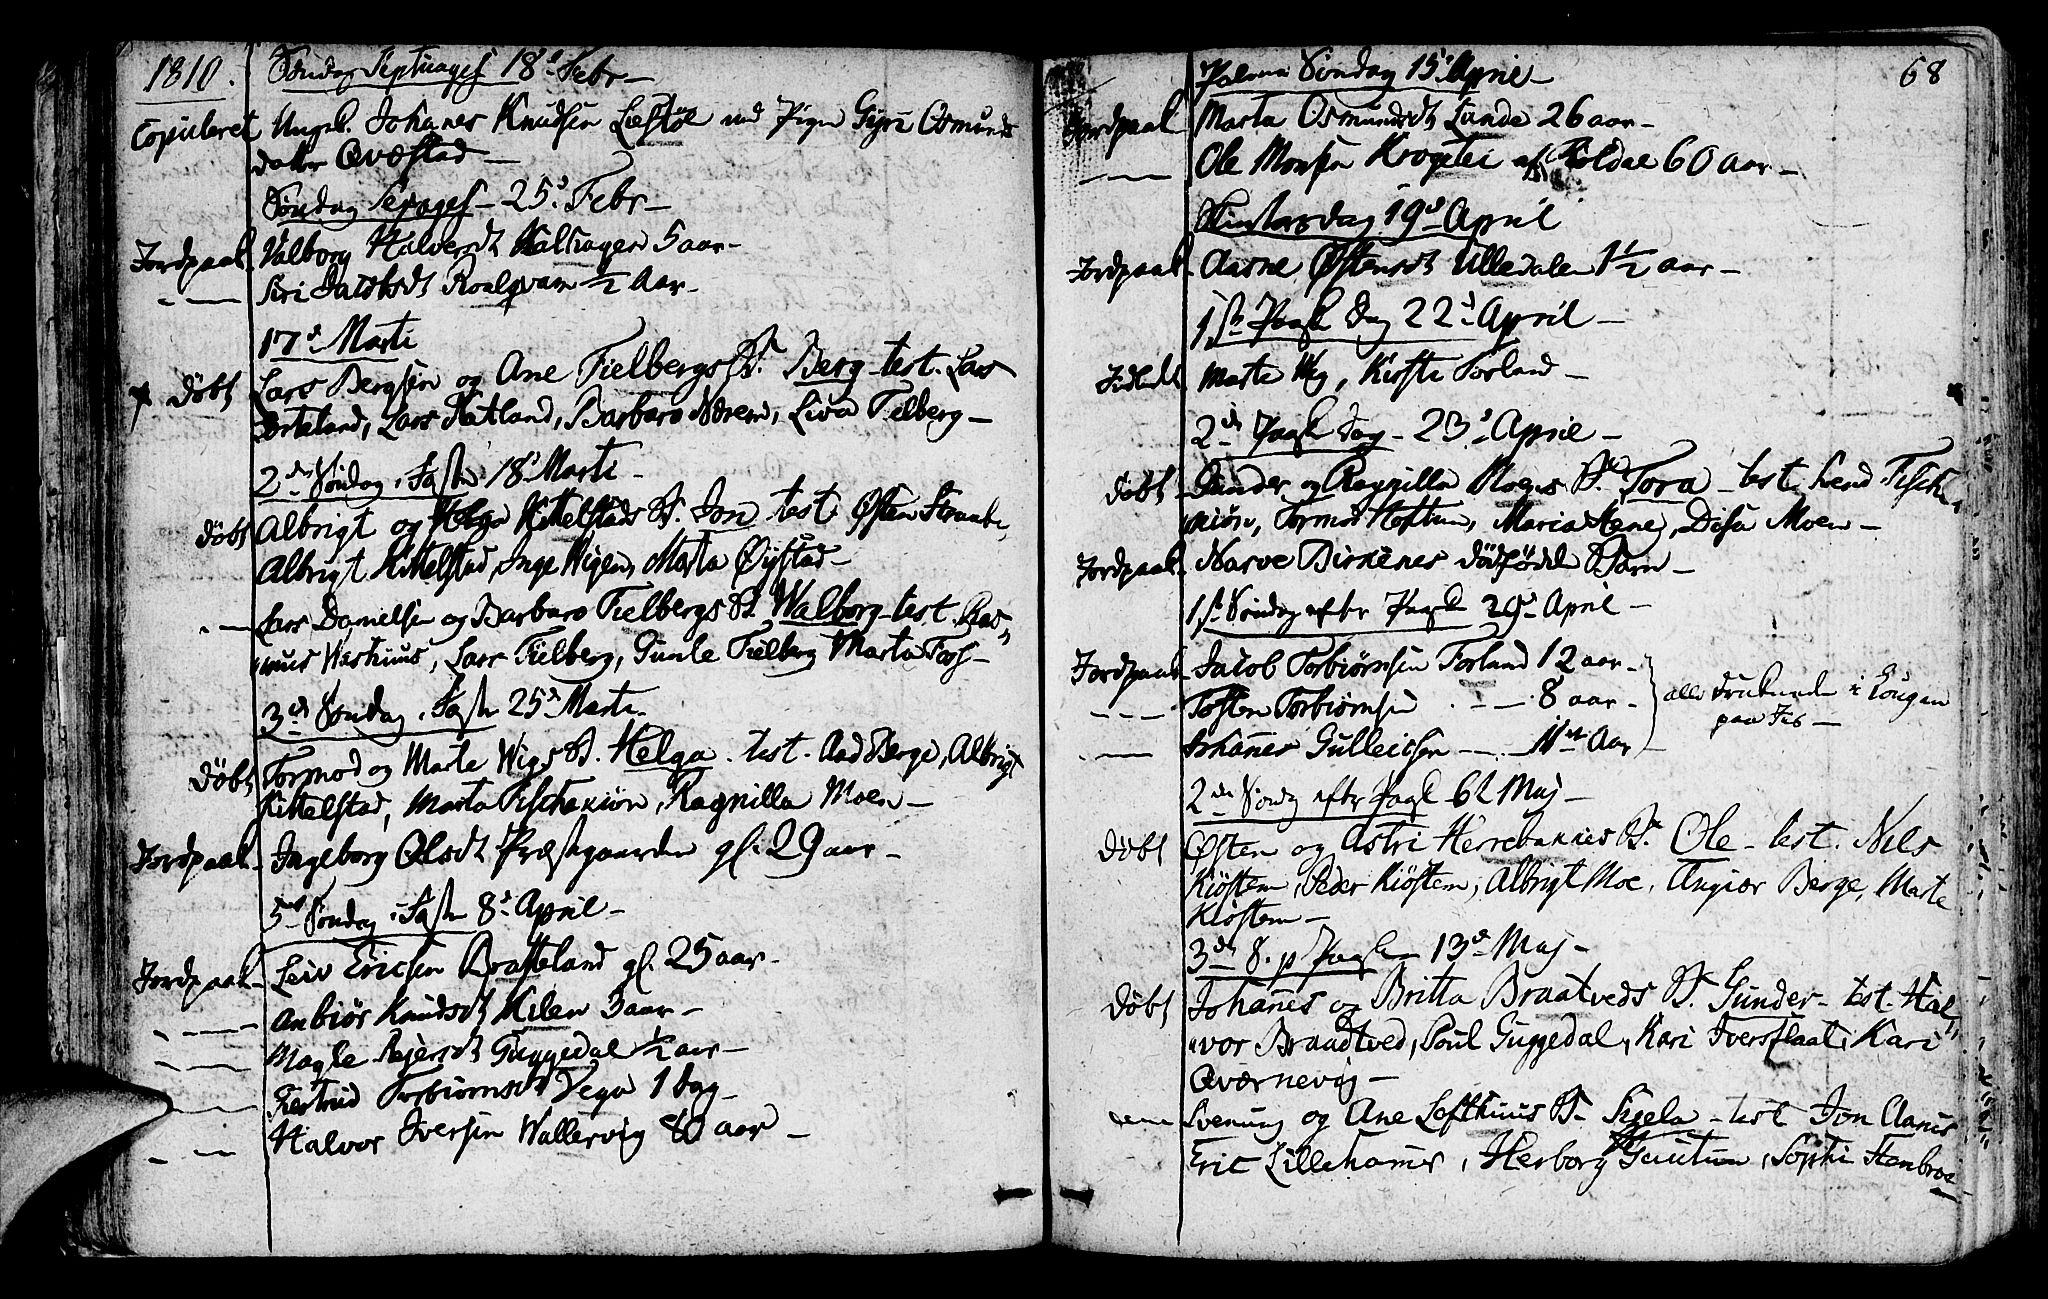 1810. Søndag Septuages 18d Febr
Copuleret Ungk. Johanes Knudsen Lestøl med Pigen Gyri Osmunds
datter Qvæstad
Søndag Sexages 25d Febr
Jordpaak. Valborg Halversdt 5 aar
Siri Jacobsdt Roalqvam 1/2 Aar
17d Marti
Døbt Lars Bergsen og Ane Fielbergs B. Berg test. Lars
Lars Ratland, Barbara Lisa Fielberg
2den Søndag i Fasten 18d Marti
Døbt Albrigt og Helga Kittelstads B. Jon test. Østen
Albrigt Kittelstad, Inge Wigen, Marta Øystad
Lars Danielsen og Barbara Fielbergs B. Walborg test. Ras
mus Washuus, Lars Fielberg, Gunle Fielberg Marta
3die Søndag i Fasten 25d Marti
Døbt Tormod og Marte Wigs B. Helga test. Aad Berge, Albrigt
Kittelstad, Marta Ragnilla Moen
Jordpaak. Ingeborg Olsdt Præstgaarden gl. 29 aar
5te Søndag i Fasten 8d April
Jordpaak. Leiv Ericsen Bratteland gl. 25 aar
Anbiør Knudsdt Kilen 3 aar
Magle Guggedal 1/2 aar
Giertrud Torbiørnsdt Vega 1 dag
Halvor Iversen Wallervig 80 aar
68
Palme Søndag 15d April
Jordpaak. Marta Osmundsdt Lunde 26 aar
Ole Monsen 60 aar
Skiertorsdag 19d April
Jordpaak. Aasne Østensdt Ulledalen 1 1/2 aar
1ste Paaske Dag 22d April
Indledt Marte Wig, Kirsti Forland
2den Paaske dag 23d April
Døbt Gunder og Ragnilla Moens B. Tora test.
Tormod Maria Disa Moen
Jordpaak. Narve Birkenes dødfødde Barn
1ste Søndag efter Paaske 29d April
Jordpaak. Jacob Torbiørnsen Forland 12 aar
Tosten Torbiørnsen 8 aar
alle druknede i Lougen
paa Iis
Johannes Gulleicsen 11 Aar
2den Søndag efter Paaske 6te Maj
Døbt Østen og Astri B. Ole test. Nels
Kiøstem, Peder Kiøstem, Albrigt Moe, Angiær Berge, Marte
Kiøstem
3die S. p Paaske 13de Maj
Døbt Johannes og Britta Braatveds B. Gunder test. Hal
vor Braadtved, Poul Guggedal, Kari Iversflaat, Kari
Qværnevig
Svenung og Ane Lofthuus B. Sigela test Jon
Eric Lillehamer, Herborg Sophi